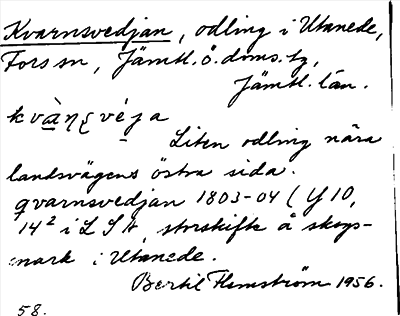 Kvarnsvedjan, odling i Utanede,
Fors sn, Jämtl. ö. doms.
Jämtl. län.
Liten odling nära
landsvägens östra sida.
qvarnsvedjan 1803-04 (Y 10,
14² i LSA, storskifte å skogs-
mark i Utanede.
Bertil Flemström 1956.
58.